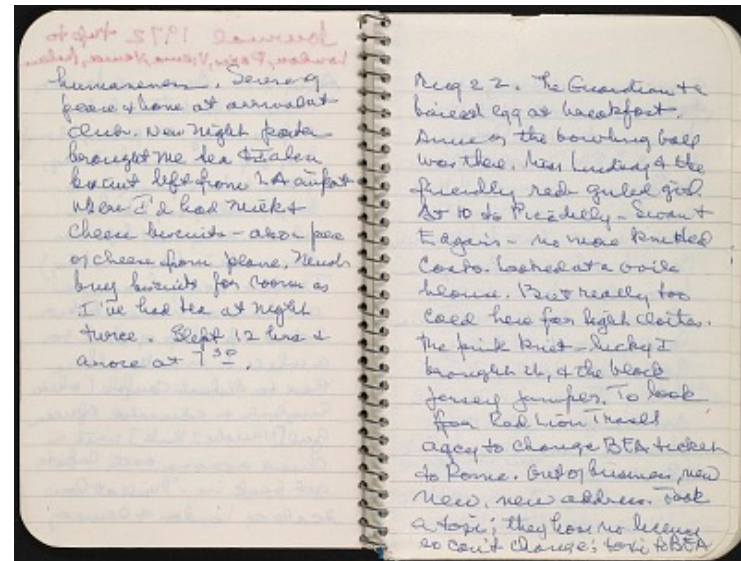 humaneness. Sense of
peace & home at arrival at
club. New night porter
brought me tea & I ate a
biscuit left from LA airport
where I'd had milk &
cheese biscuits - also pce
of cheese from plane. Must
buy biscuits for room as
I've had tea at night
twice. Slept 12 hrs &
awoke at 7³⁰.
Aug 22. The Guardian & a
boiled egg at breakfast.
Anne of the bowling ball
was there. Miss Lindsey & the
friendly red- girl
At 10 to Picadilly - Swan &
E again - no more knitted
coats. Looked at a voile
blouse. But really too
cold here for light clothes.
The pink knit - lucky I
brought it, & the black
jersey jumper. To look
for Red Lion Travel
agcy to change BEA ticket
to Rome. Out of business, new
new, new address. Took
a taxi; they have no license
so can't change; taxi to BEA